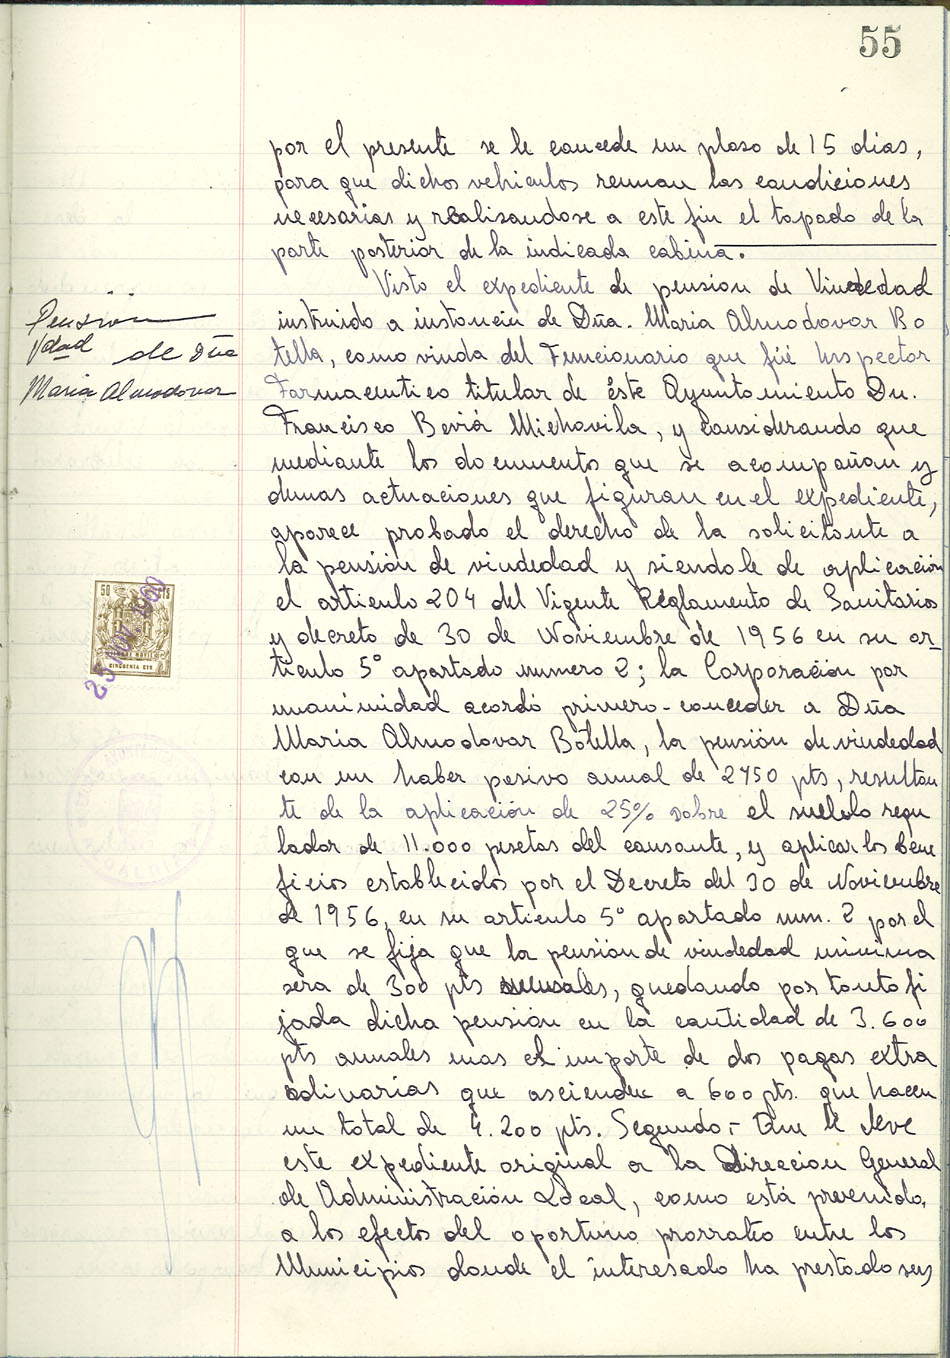 55
por el presente se le concede un plaso de 15 dias,
para que dichos vehiculos reunan las condiciones
necesarias y realisandose a este fin el tapado de la
parte posterior de la indicada cabina.
Visto el expediente de pensión de Viudedad
instruido a instancia de Dña. Maria Almodovar Bo
tella, como viuda del Funcionario que fué Inspector
Farmaceutico titular de éste Ayuntamiento Dn.
Francisco Beviá Michavila, y considerando que
mediante los documentos que se acompañan y
demas actuaciones que figuran en el expediente,
aparece probado el derecho de la solicitante a
la pensión de viudedad y siendole de aplicación
el articulo 204 del Vigente Reglamento de Sanitarios
y decreto de 30 de Noviembre de 1956 en su ar-
ticulo 5º apartado numero 2; la Corporación por
unanimidad acordó primero-conceder a Dña
Maria Almodovar Botella, la pensión de viudedad
con un haber pasivo anual de 2750 pts, resultan
te de la aplicación de 25% sobre el sueldo regu
lador de 11.000 pesetas del causante, y aplicar los bene
ficios establecidos por el Decreto del 30 de Noviembre
de 1956, en su articulo 5º apartado num. 2 por el
que se fija que la pensión de viudedad minima
sera de 300 pts mensuales, quedando por tanto fi
jada dicha pensión en la cantidad de 3.600
pts anuales mas el importe de dos pagas extra
odinarias que asciende a 600 pts. que hacen
un total de 4.200 pts. Segundo.- Que se eleve
este expediente original a la Direccion General
de Administración Local, como está prevenido,
a los efectos del oportuno prorrateo entre los
Municipios donde el interesado ha prestado sus
Pensión
vdad de Dña
Maria Almodovar
50 CTS
TIMBRE MOVIL
CINCUENTA CTS
25 NOV. 1960